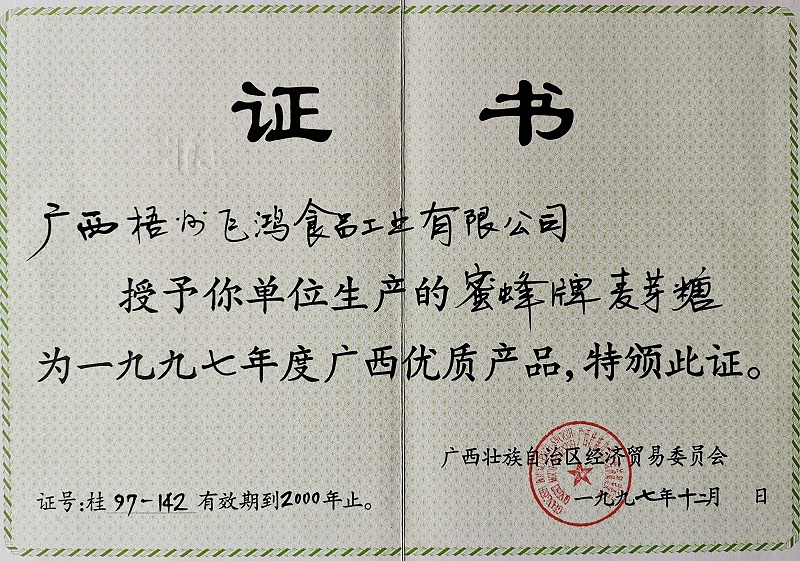 证 书
广西梧州飞鸿食品工业有限公司
授予你单位生产的蜜蜂牌麦芽糖
为一九九七年度广西优质产品，特颁此证。
广西壮族自治区经济贸易委员会
证号：桂 97-142 有效期到2000年止。
一九九七年十二月 日